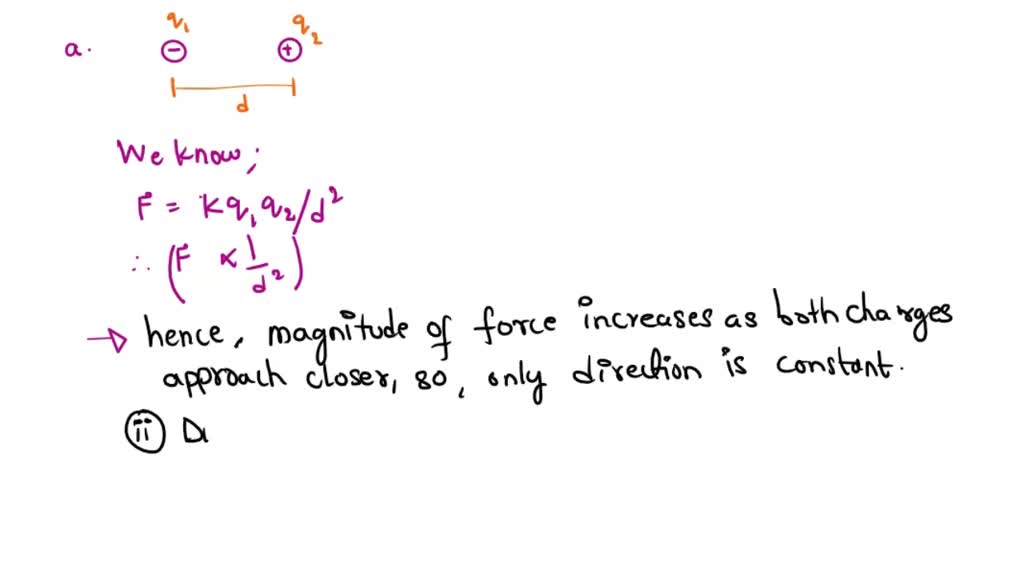 q₁ q₂
a. − +
d
We know;
F = Kq₁q₂/d²
∴ (F ∝ 1/d²)
→ hence, magnitude of force increases as both charges
approach closer, so, only direction is constant.
ii D